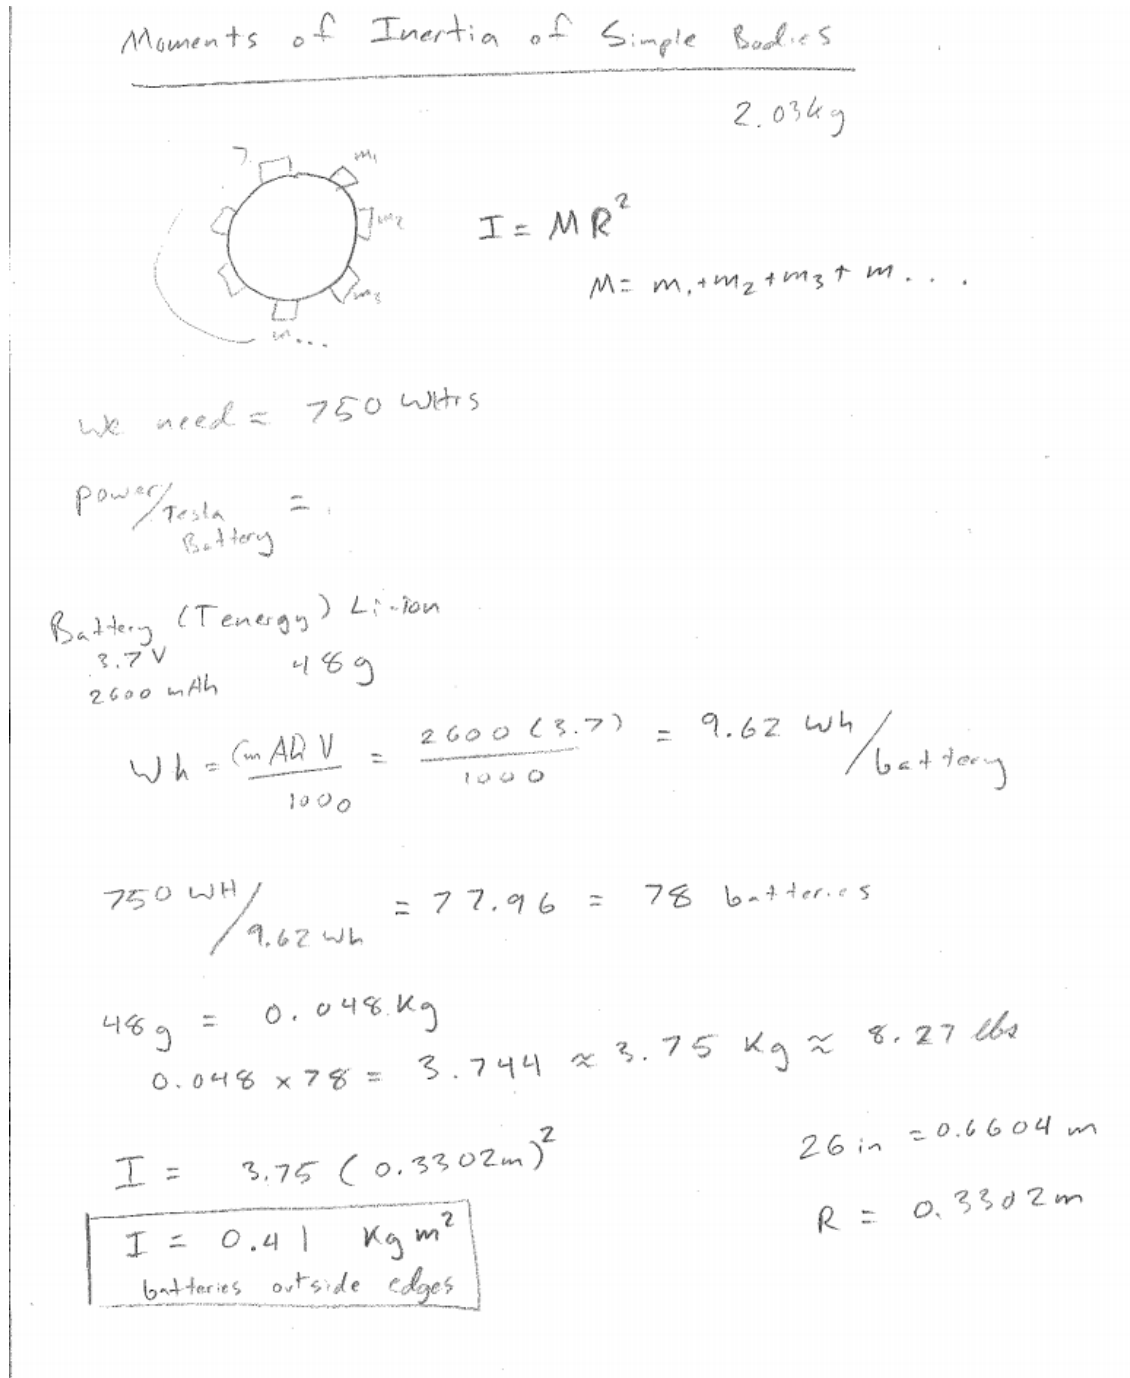 Moments of Inertia of Simple Bodies
2.03kg
m1
m2
m3
m...
I = MR²
M = m1+m2+m3+m....
We need = 750 WHrs
Power/Tesla Battery =
Battery (Tenergy) Li-Ion
3.7V 48g
2600 mAh
Wh = (mAh)V/1000 = 2600(3.7)/1000 = 9.62 Wh/battery
750 WH/9.62 Wh = 77.96 = 78 batteries
48g = 0.048 Kg
0.048 x 78 = 3.744 ≈ 3.75 Kg ≈ 8.27 lbs
26 in = 0.6604 m
I = 3.75 (0.3302m)²
R = 0.3302m
I = 0.41 Kg m²
batteries outside edges